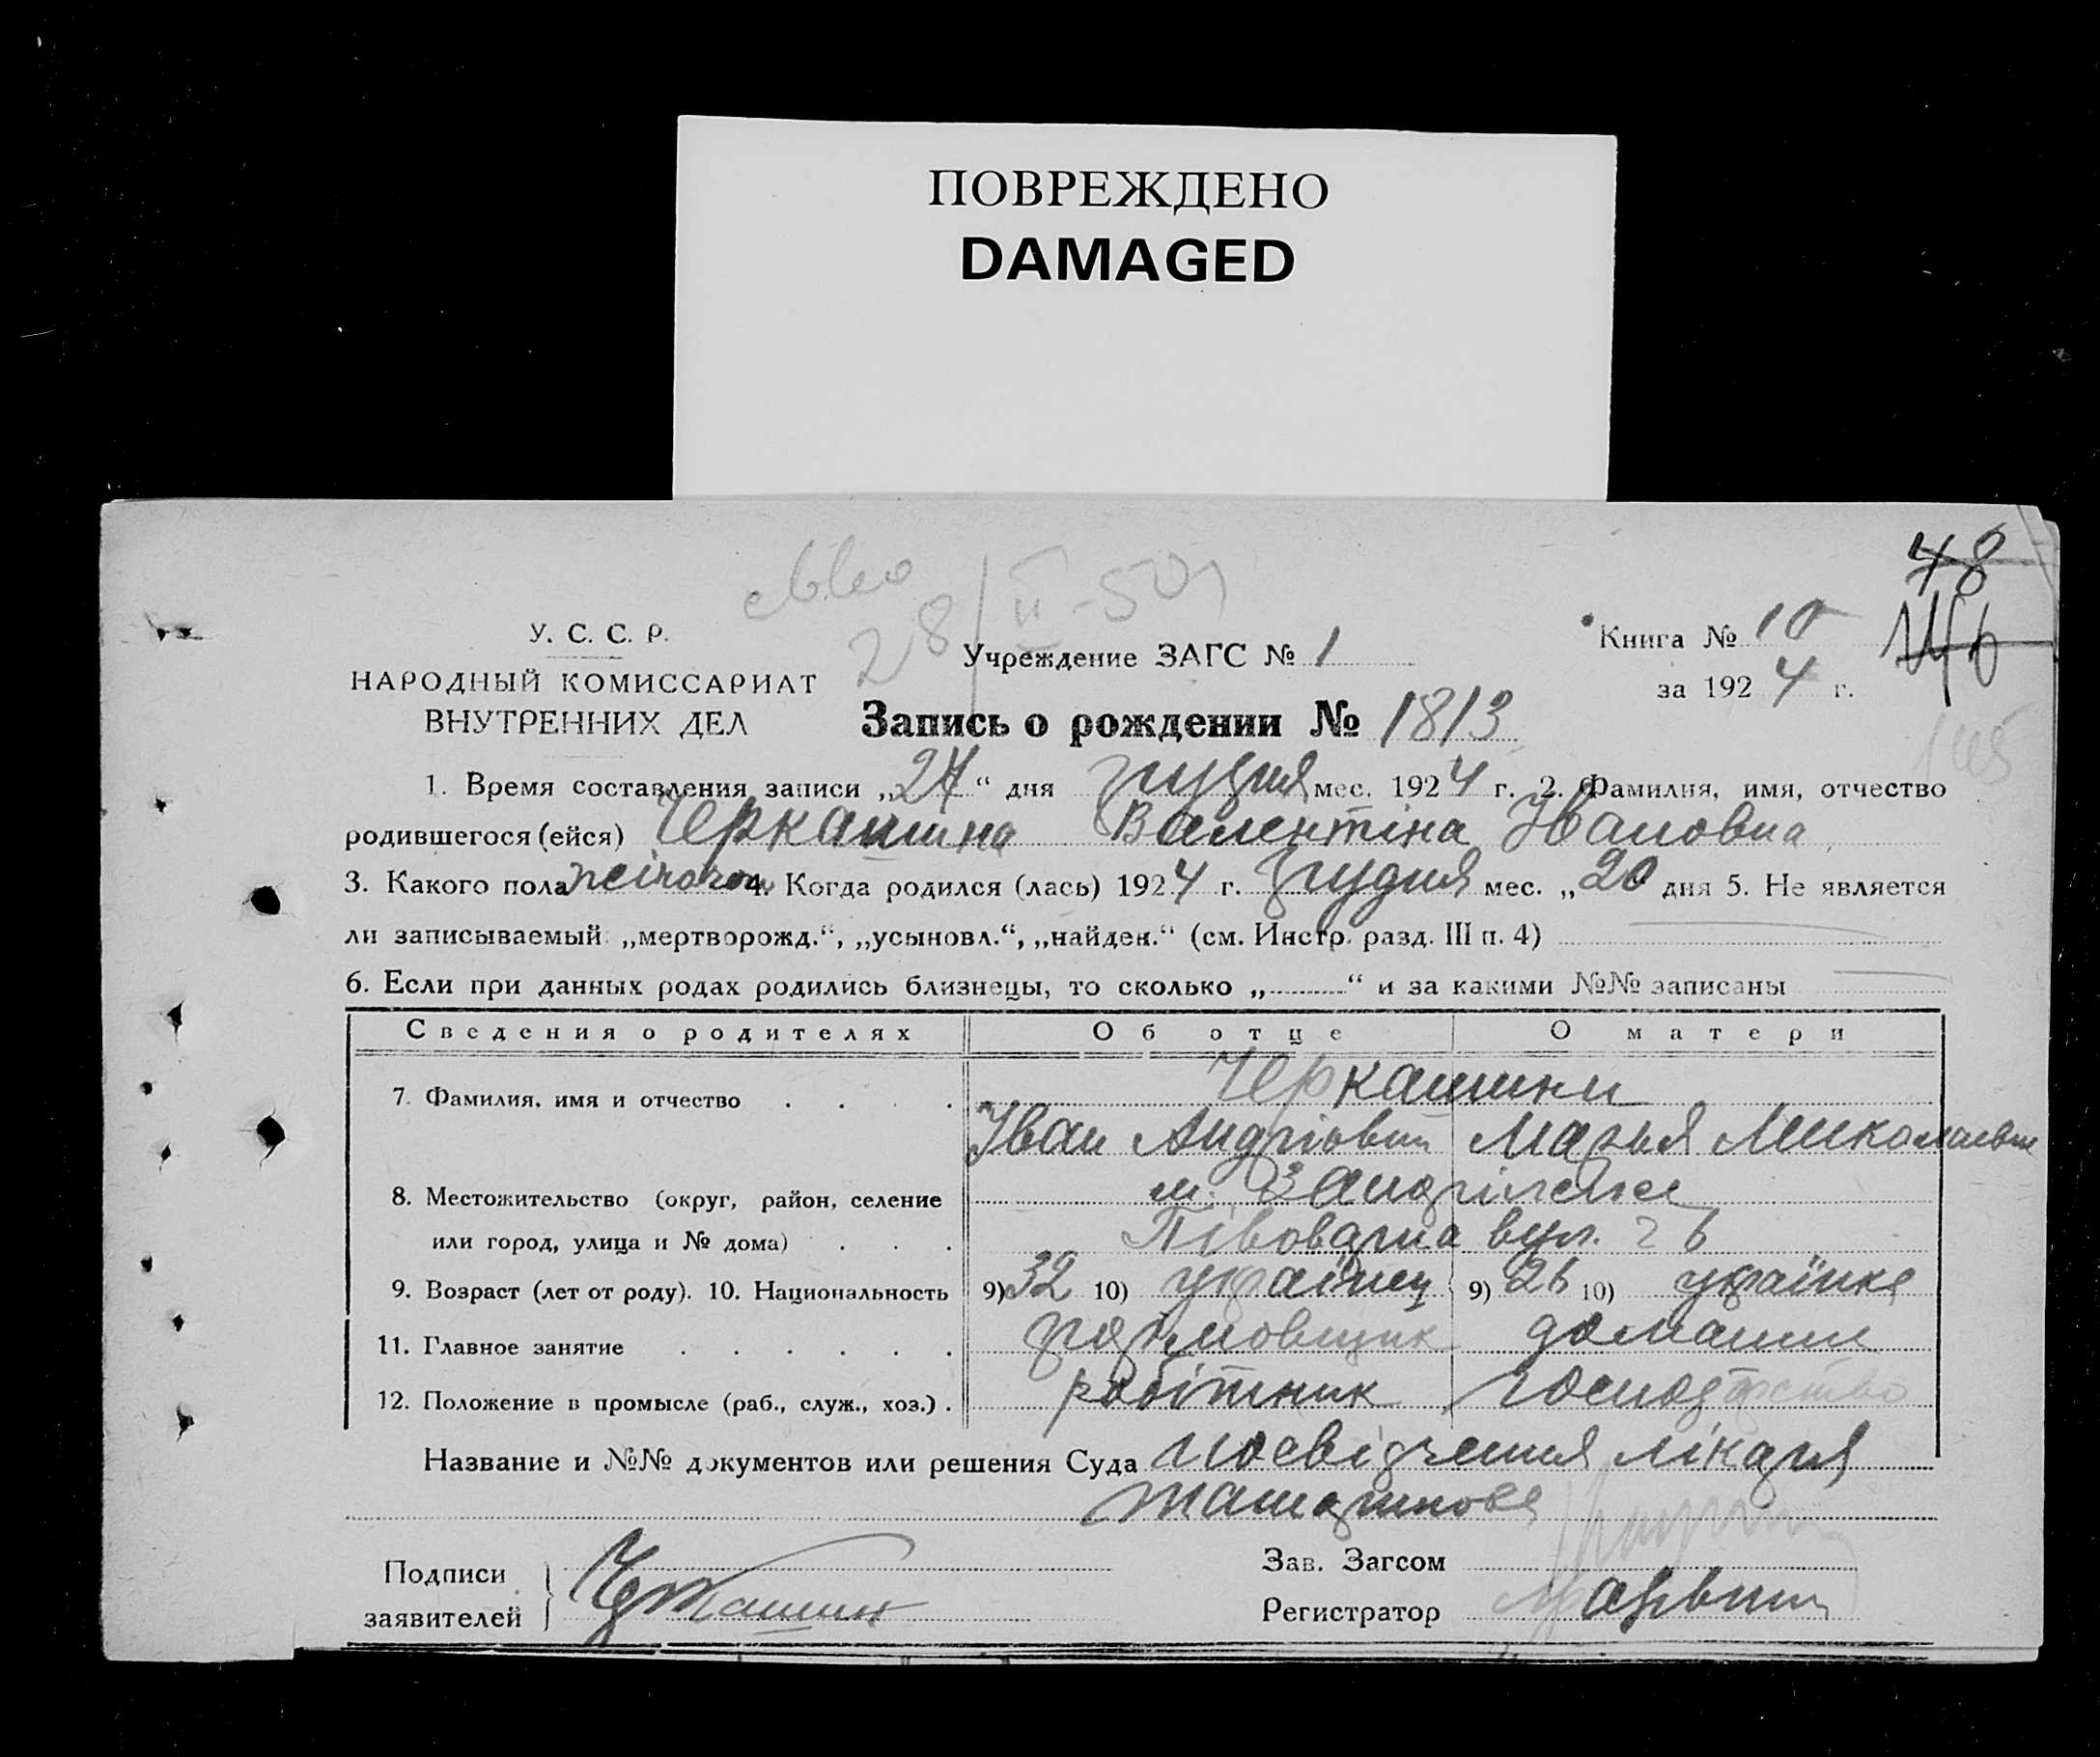 ПОВРЕЖДЕНО
DAMAGED
48
28/II-50
146
У. С. С. Р.
НАРОДНЫЙ КОМИССАРИАТ
ВНУТРЕННИХ ДЕЛ
Учреждение ЗАГС № 1
Книга № 10
за 1924 г.
145
Запись о рождении № 1813
1. Время составления записи „24“ дня грудня мес. 1924 г. 2. Фамилия, имя, отчество
родившегося (ейся) Черкашина Валентіна Івановна
3. Какого пола 4. Когда родился (лась) 1924 г. грудня мес. „20 дня 5. Не является
ли записываемый „мертворожд.“, „усыновл.“, „найден.“ (см. Инстр. разд. III п. 4)
6. Если при данных родах родились близнецы, то сколько „ “ и за какими №№ записаны
Сведения о родителях Об отце О матери
7. Фамилия, имя и отчество Черкашини
Іван Андріович Марья Миколаевна
8. Местожительство (округ, район, селение м.
или город, улица и № дома) Півоварна вул. 26
9. Возраст (лет от роду). 10. Национальность 9) 32 10) українец 9) 26 10) українка
11. Главное занятие формовщик домашне
12. Положение в промысле (раб., служ., хоз.) робітник господарство
Название и №№ документов или решения Суда посвідчення лікаря
Подписи
заявителей Черкашин
Зав. Загсом
Регистратор